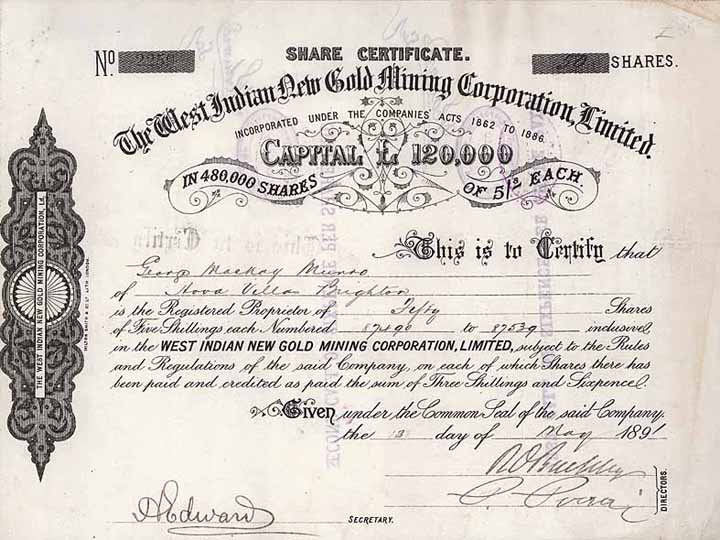 SHARE CERTIFICATE.
No 2250
50 SHARES.
The West Indian New Gold Mining Corporation, Limited.
INCORPORATED UNDER THE COMPANIES' ACTS 1862 TO 1886.
CAPITAL £ 120,000
IN 480,000 SHARES OF 5/- EACH.
This is to Certify that
George Mackay Munro
of Villa Brighton
is the Registered Proprietor of Fifty Shares
of Five Shillings each Numbered 87490 to 87539 inclusive
in the WEST INDIAN NEW GOLD MINING CORPORATION, LIMITED, subject to the Rules
and Regulations of the said Company, on each of which Shares there has
been paid and credited as paid the sum of Three Shillings and Sixpence.
Given under the Common Seal of the said Company.
the 13 day of May 1891
DIRECTORS.
A Edward
SECRETARY.
THE WEST INDIAN NEW GOLD MINING CORPORATION, Ld.